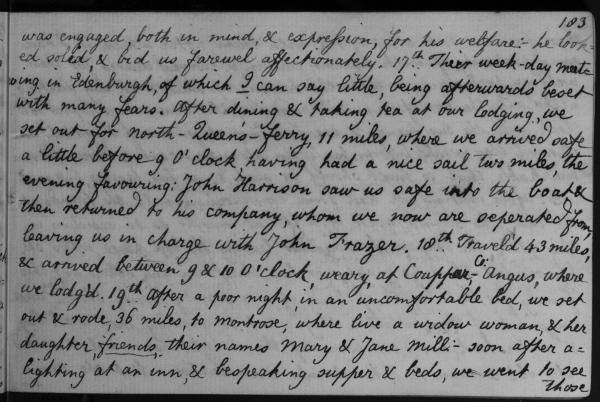 183
was engaged, both in mind, & expression, for his welfare:- he look-
ed solid, & bid us farewel affectionately. 17th. Their week-day meet-
ing in Edenburgh, of which I can say little, being afterwards beset
with many fears. After dining & taking tea at our lodging, we
set out for north-Queens-ferry, 11 miles, where we arrived safe
a little before 9 O'clock, having had a nice sail two miles, the
evening favouring: John Harrison saw us safe into the boat &
then returned to his company, whom we now are seperated from,
leaving us in charge with John Frazer. 18th. Travel'd 43 miles,
& arrived between 9 & 10 O'clock, weary, at Coupar, Co. Angus, where
we lodg'd. 19th. after a poor night, in an uncomfortable bed, we set
out & rode, 36 miles, to montrose, where live a widow woman, & her
daughter, friends, their names Mary & Jane Mill:- soon after a-
lighting at an inn, & bespeaking supper & beds, we went to see
those